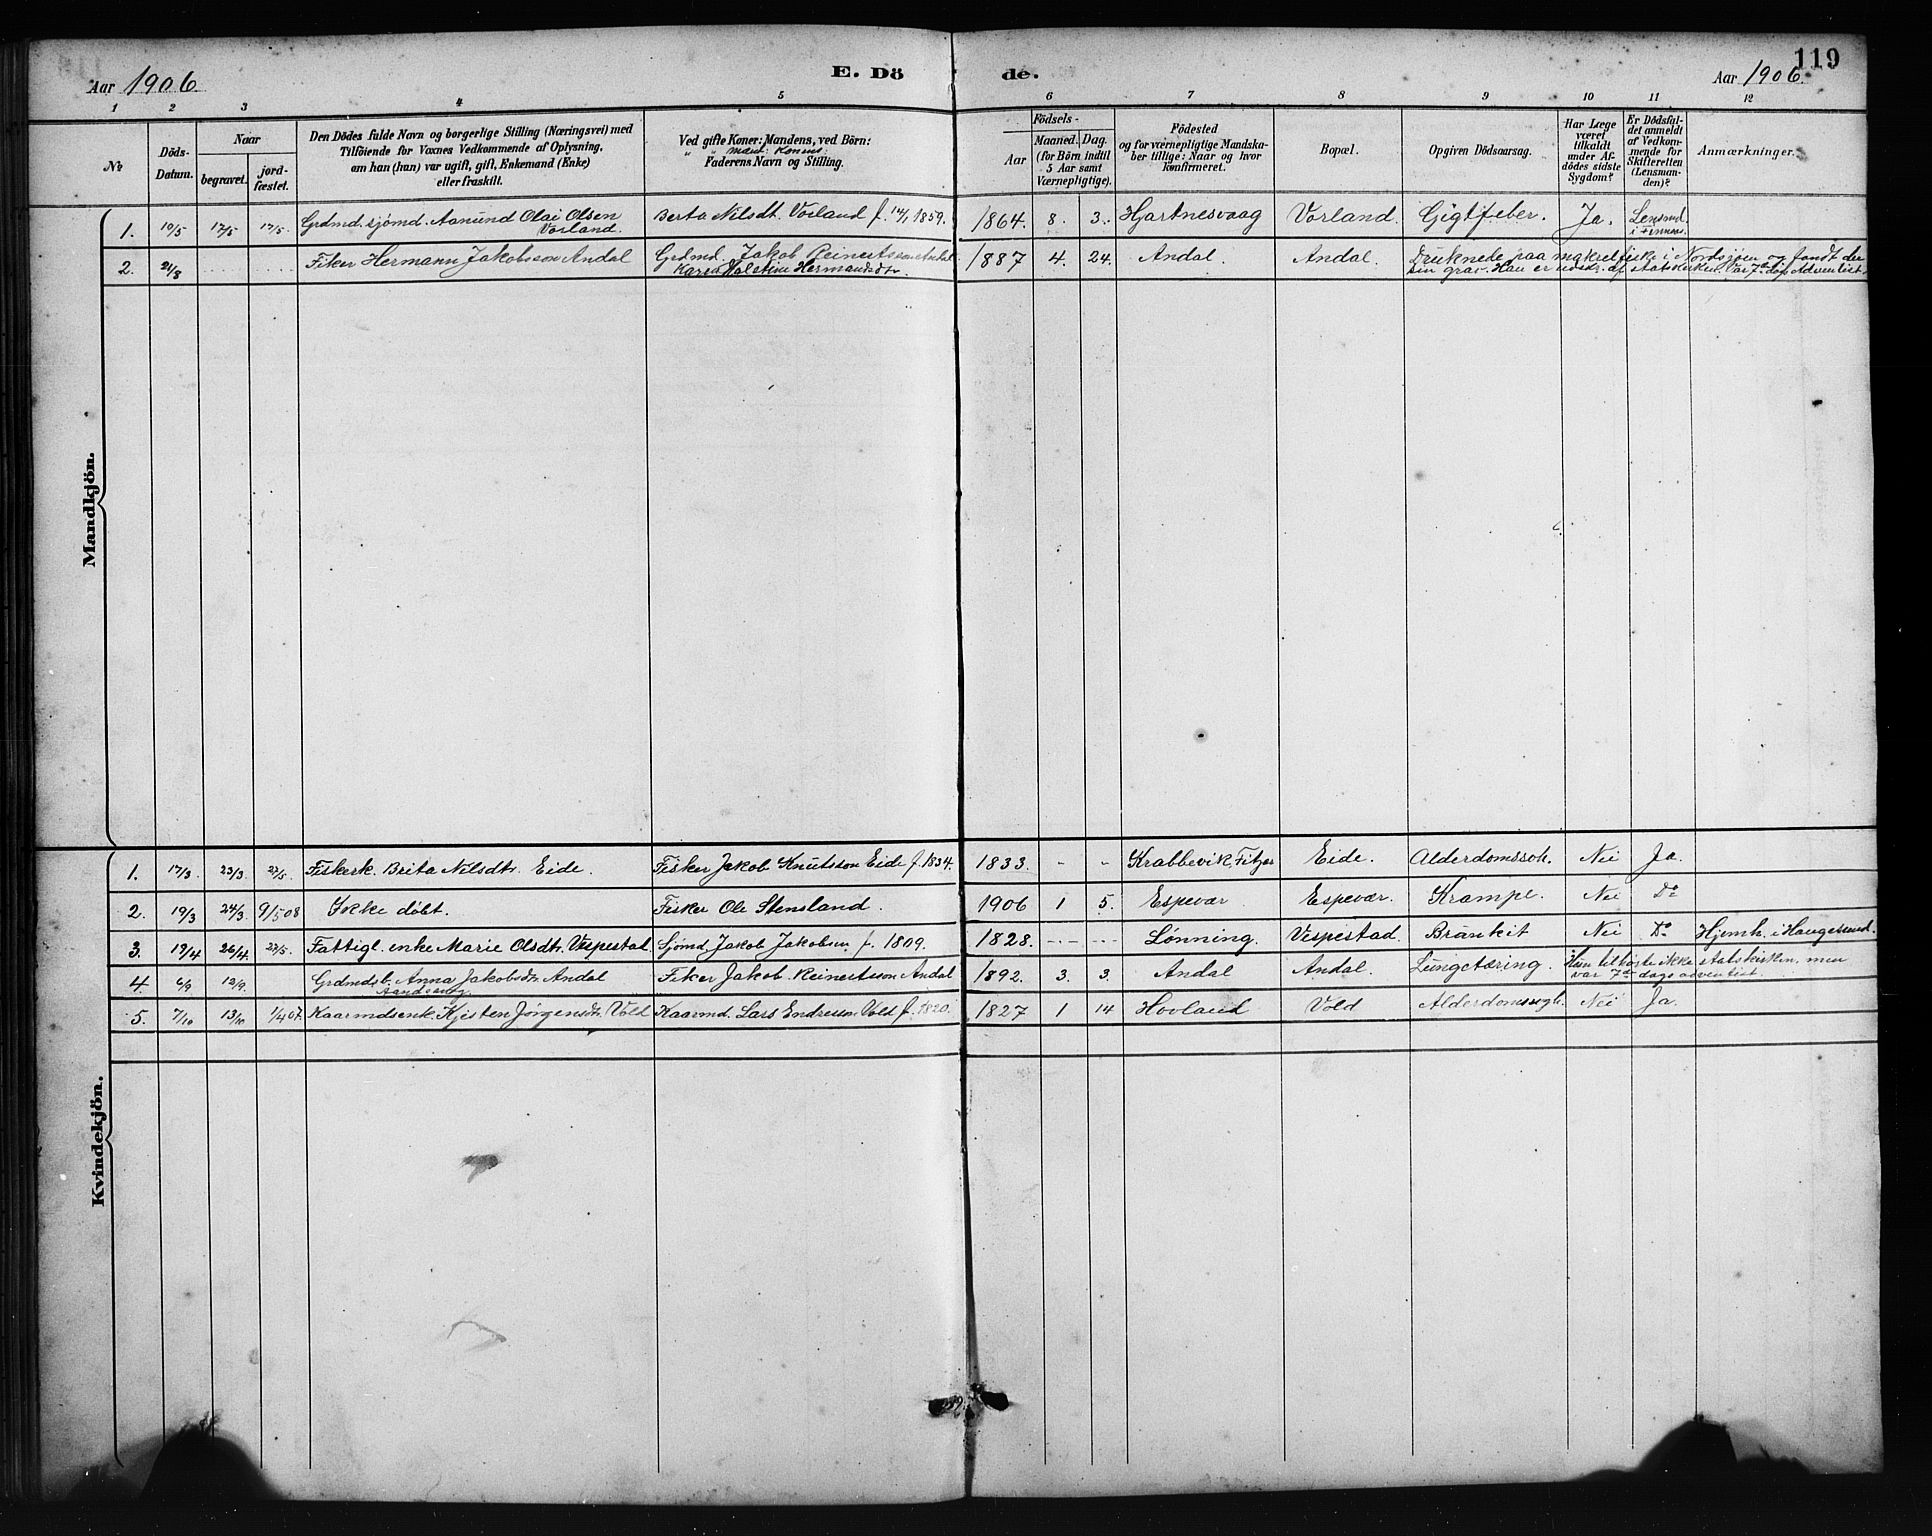 119
Aar 1906.
E. Dö
de.
Aar 1906.
1 2 3 4 5 6 7 8 9 10 11 12
No
Döds-Datum.
Naar
begravet.
jord-fæstet.
Den Dödes fulde Navn og borgerlige Stilling (Næringsvei) med
Tilföiende for Voxnes Vedkommende af Oplysning,
om han (hun) var ugift, gift, Enkemand (Enke)
eller fraskilt.
Ved gifte Koner: Mandens, ved Börn:
" " mænd: Konens:
Faderens Navn og Stilling.
Födsels-
Aar
Maaned. Dag.
(for Börn indtil
5 Aar samt
Værnepligtige).
Födested
og for værnepligtige Mandska-
ber tillige: Naar og hvor
konfirmeret.
Bopæl.
Opgiven Dödsaarsag.
Har Læge
været
tilkaldt
under Af-
dödes sidste
Sygdom?
Er Dödsfal-
det anmeldt
af Vedkom-
mende for
Skifteretten
(Lensman-
den)?
Anmærkninger.
Mandkjön.
1. 10/5 17/5 17/5. Grdmd. sjömd. Aanund Olai Olsen Vorland. Berta Nilsdt. Vorland f. 14/1 1859. 1864. 8. 3. Hjartnesvaag Vorland. Gigtfeber. Ja. Lensmd. i Finnaas.
2. 21/8 Fiker Hermann Jakobsson Andal Grdmd. Jakob Reinertsson Andal
Karen Valstine Hermandsdtr 1887 4. 24. Andal. Andal. Druknede paa makrelfiske i Nordsjøen og fandt der
sin grav. Han er udtr. af statskirken. Var 7de dags Adventist.
Kvindekjön.
1. 17/3 23/3. 27/5. Fiskerk. Brita Nilsdtr. Eide. Fisker Jakob Knutsson Eide f. 1834. 1833. - " Krabbevik, Fitjar Eide. Alderdomssvh. Nei Ja.
2. 19/3 24/3. 9/5 08 Ikke döbt. Fisker Ole Stensland. 1906 1 5. Espevær Espevær. Krampe. Nei Do
3. 19/4 26/4. 27/5. Fattigl. enke Marie Olsdtr. Vespestad. Sjömd. Jakob Jakobsen f. 1809. 1828. Lønning. Vespestad. Bronkit Nei Do Hjemh. i Haugesund.
4. 6/9 12/9. Grdmdsb. Anna Jakobsdtr. Andal Fiker Jakob Reinertsson Andal 1892. 3. 3. Andal Andal. Lungetæring. Hun tilhørte ikke statskirken, men
var 7de dags adventist.
5. 7/10 13/10 1/4 07. Kaarmdsenk. Kjisten Jørgensdtr. Vold Kaarmd. Lars Endresson Vold f. 1820. 1827 1 14 Hovland Vold Alderdomssvgh. Nei Ja.